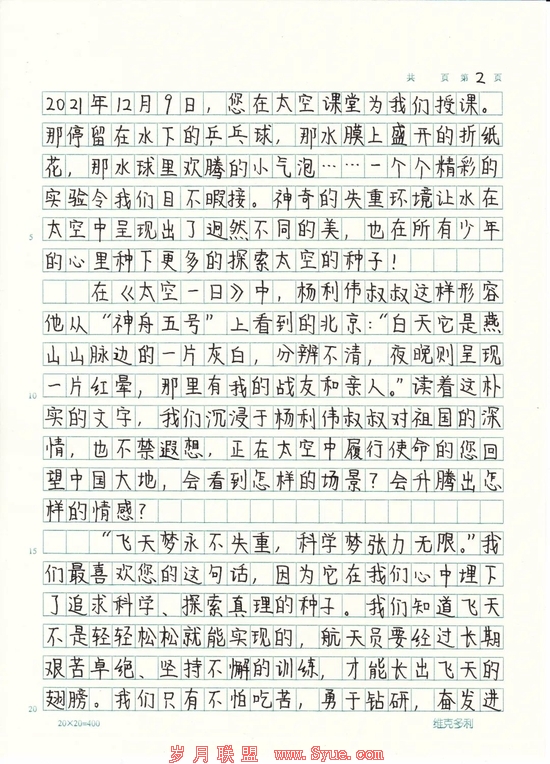 共 页 第 2 页
2021年12月9日，您在太空课堂为我们授课。
那停留在水下的乒乓球，那水膜上盛开的折纸
花，那水球里欢腾的小气泡……一个个精彩的
实验令我们目不暇接。神奇的失重环境让水在
5 太空中呈现出了迥然不同的美，也在所有少年
的心里种下更多的探索太空的种子！
在《太空一日》中，杨利伟叔叔这样形容
他从“神舟五号”上看到的北京：“白天它是燕
山山脉边的一片灰白，分辨不清，夜晚则呈现
10 一片红晕，那里有我的战友和亲人。”读着这朴
实的文字，我们沉浸于杨利伟叔叔对祖国的深
情，也不禁遐想，正在太空中履行使命的您回
望中国大地，会看到怎样的场景？会升腾出怎
样的情感？
15 “飞天梦永不失重，科学梦张力无限。”我
们最喜欢您的这句话，因为它在我们心中埋下
了追求科学、探索真理的种子。我们知道飞天
不是轻轻松松就能实现的，航天员要经过长期
艰苦卓绝、坚持不懈的训练，才能长出飞天的
20 翅膀。我们只有不怕吃苦，勇于钻研，奋发进
20×20=400 维克多利
岁月联盟 www.Syue.com